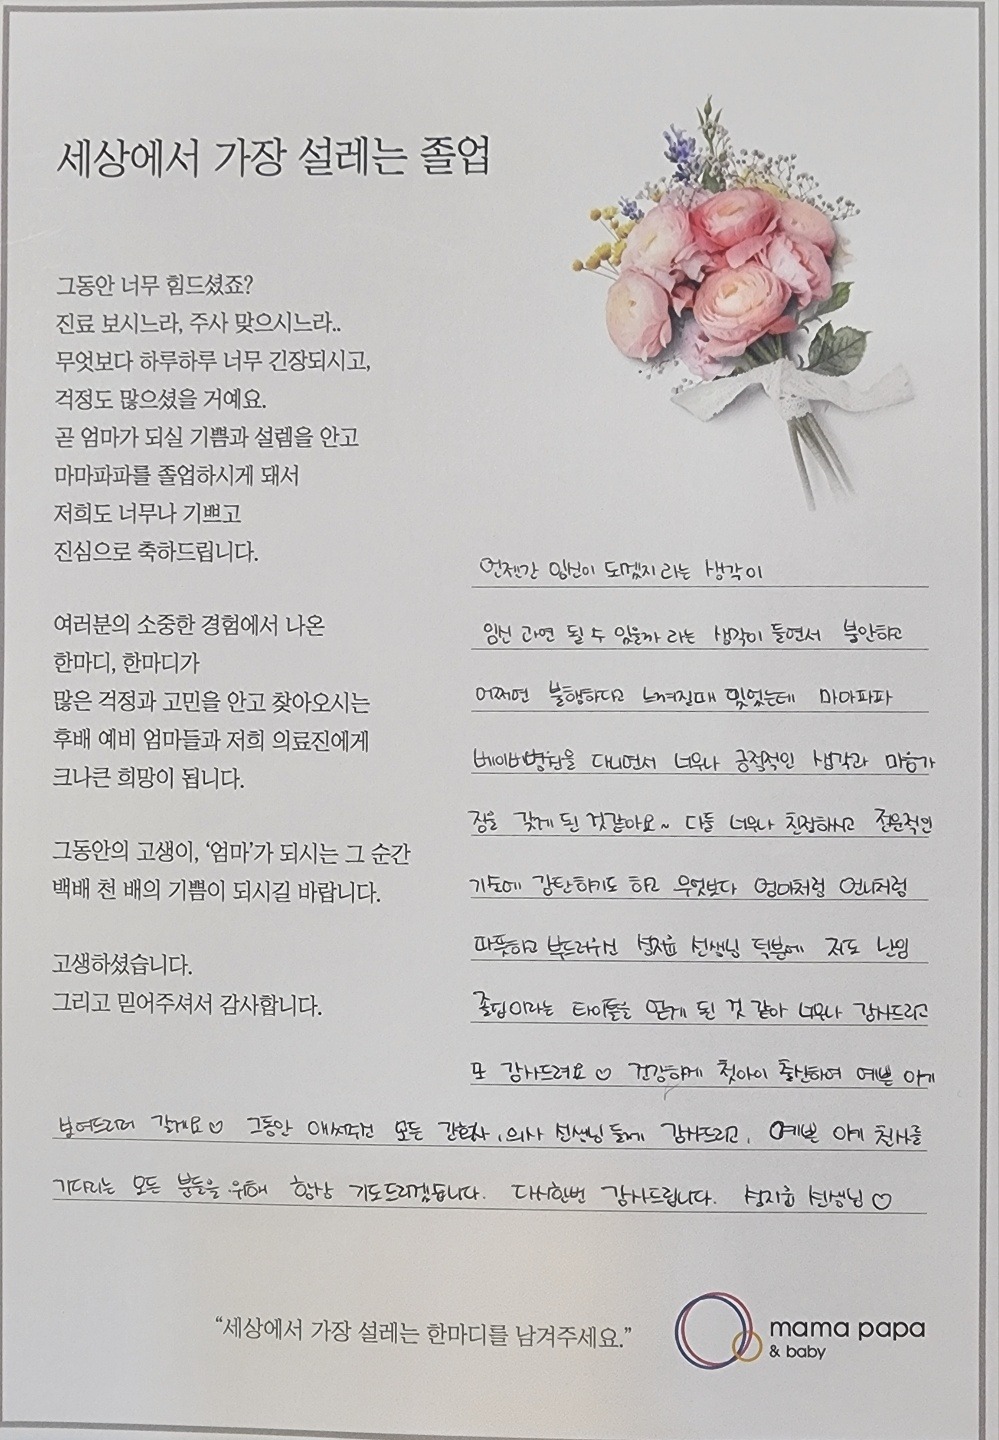 세상에서 가장 설레는 졸업
그동안 너무 힘드셨죠?
진료 보시느라, 주사 맞으시느라..
무엇보다 하루하루 너무 긴장되시고,
걱정도 많으셨을 거예요.
곧 엄마가 되실 기쁨과 설렘을 안고
마마파파를 졸업하시게 돼서
저희도 너무나 기쁘고
진심으로 축하드립니다.
여러분의 소중한 경험에서 나온
한마디, 한마디가
많은 걱정과 고민을 안고 찾아오시는
후배 예비 엄마들과 저희 의료진에게
크나큰 희망이 됩니다.
그동안의 고생이, ‘엄마’가 되시는 그 순간
백배 천 배의 기쁨이 되시길 바랍니다.
고생하셨습니다.
그리고 믿어주셔서 감사합니다.
언젠간 임신이 되겠지 라는 생각이
임신 과연 될 수 있을까 라는 생각이 들면서 불안하고
어쩌면 불행하다고 느껴질때 있었는데 마마파파
베이비병원을 다니면서 너무나 긍정적인 생각과 마음가
짐을 갖게 된 것같아요~ 다들 너무나 친절하시고 전문적인
기술에 감탄하기도 하고 무엇보다 엄마처럼 언니처럼
따뜻하고 부드러우신 성지윤 선생님 덕분에 저도 난임
졸업이라는 타이틀을 얻게 된 것 같아 너무나 감사드리고
또 감사드려요♡ 건강하게 첫아이 출산하여 예쁜 아게
보여드리러 갈게요♡ 그동안 애써주신 모든 간호사, 의사 선생님들께 감사드리고, 예쁜 아게 천사를
기다리는 모든 분들을 위해 항상 기도드리겠습니다. 다시한번 감사드립니다. 성지윤 선생님♡
“세상에서 가장 설레는 한마디를 남겨주세요.”
mama papa
& baby